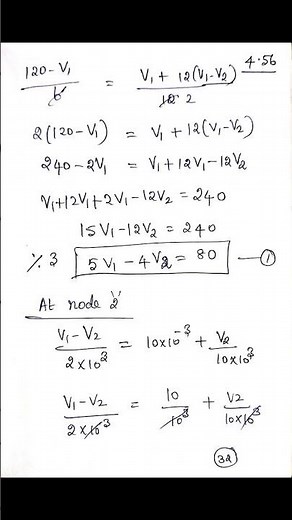 4.56
(120-V₁)/6 = (V₁ + 12(V₁-V₂))/12 2
2(120-V₁) = V₁ + 12(V₁-V₂)
240-2V₁ = V₁+12V₁-12V₂
V₁+12V₁+2V₁-12V₂ = 240
15V₁-12V₂ = 240
% 3 5V₁-4V₂ = 80 — ①
At node '2'
(V₁-V₂)/(2×10³) = 10×10⁻³ + V₂/(10×10³)
(V₁-V₂)/(2×10³) = 10/10³ + V₂/(10×10³)
32